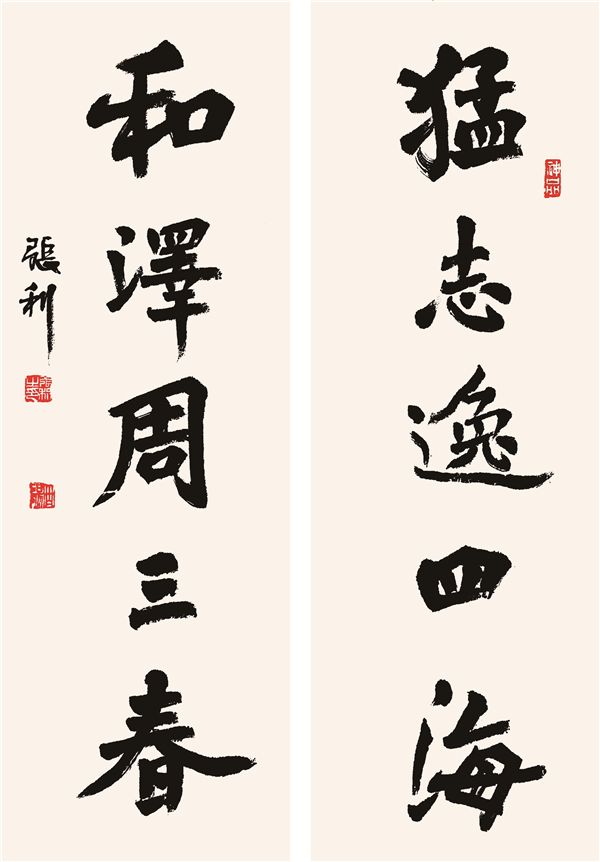 猛志逸四海
和澤周三春
張利